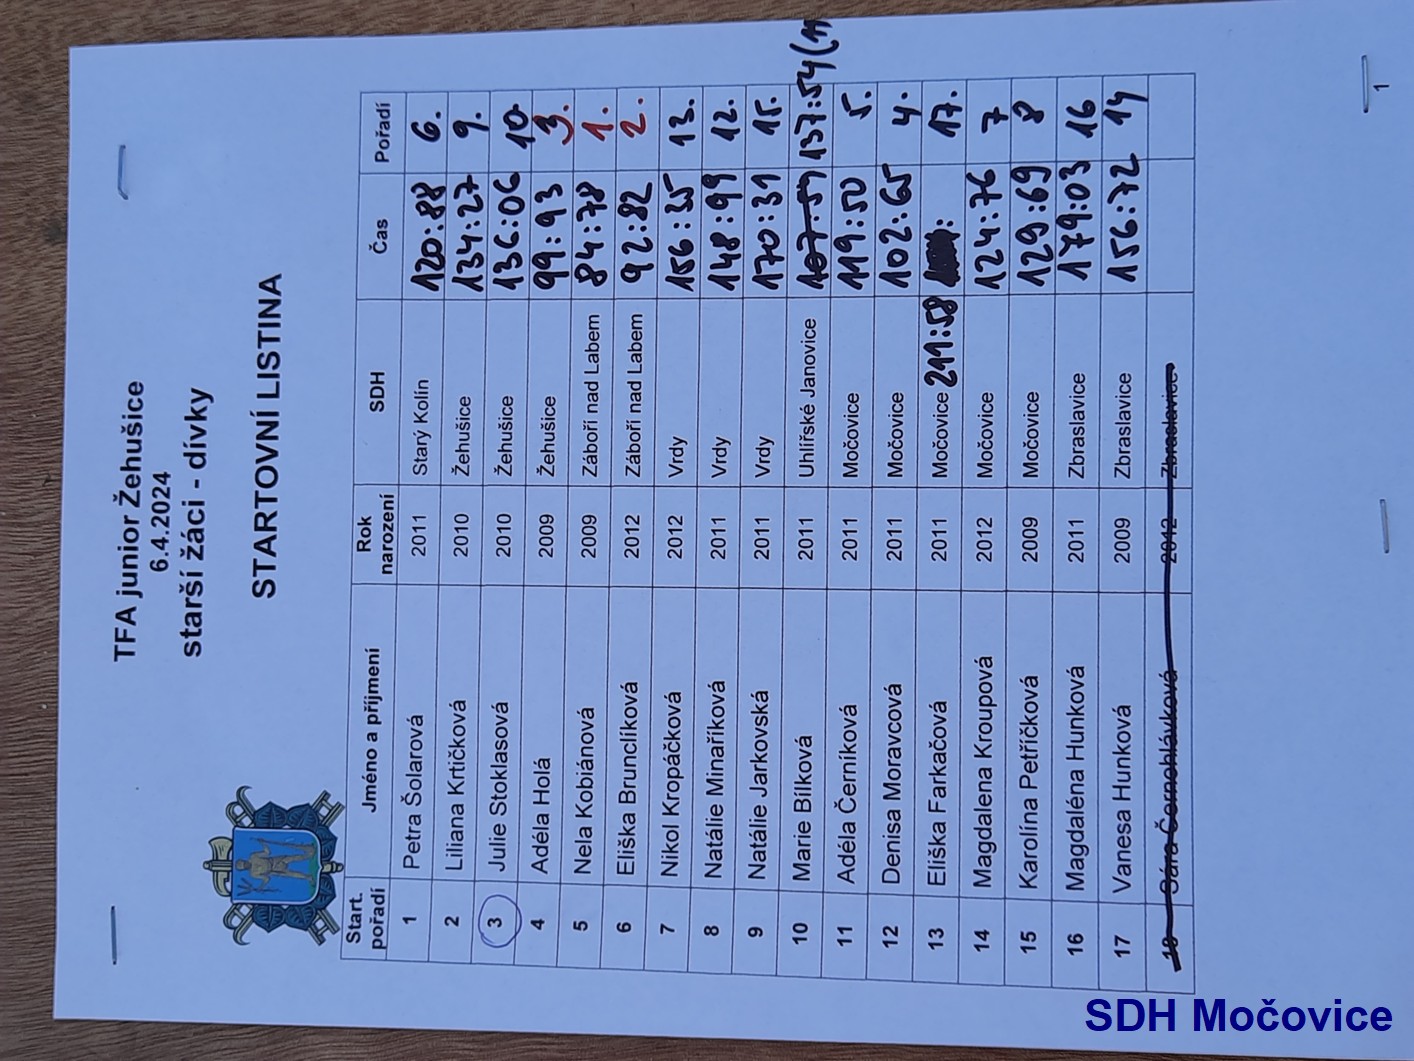 TFA junior Žehušice
6.4.2024
starší žáci - dívky
STARTOVNÍ LISTINA
Start. pořadí Jméno a příjmení Rok narození SDH Čas Pořadí
1 Petra Šolarová 2011 Starý Kolín 120:88 6.
2 Liliana Krtičková 2010 Žehušice 134:27 9.
3 Julie Stoklasová 2010 Žehušice 136:06 10.
4 Adéla Holá 2009 Žehušice 99:93 3.
5 Nela Kobiánová 2009 Záboří nad Labem 84:78 1.
6 Eliška Brunclíková 2012 Záboří nad Labem 92:82 2.
7 Nikol Kropáčková 2012 Vrdy 156:35 13.
8 Natálie Minaříková 2011 Vrdy 148:99 12.
9 Natálie Jarkovská 2011 Vrdy 170:31 15.
10 Marie Bílková 2011 Uhlířské Janovice 107:59 137:54 (11
11 Adéla Černíková 2011 Močovice 119:50 5.
12 Denisa Moravcová 2011 Močovice 102:65 4.
13 Eliška Farkačová 2011 Močovice 211:58 17.
14 Magdalena Kroupová 2012 Močovice 124:76 7
15 Karolína Petříčková 2009 Močovice 129:69 8
16 Magdaléna Hunková 2011 Zbraslavice 179:03 16
17 Vanesa Hunková 2009 Zbraslavice 156:72 14
18 Sára Černohlávková 2012 Zbraslavice
1
SDH Močovice